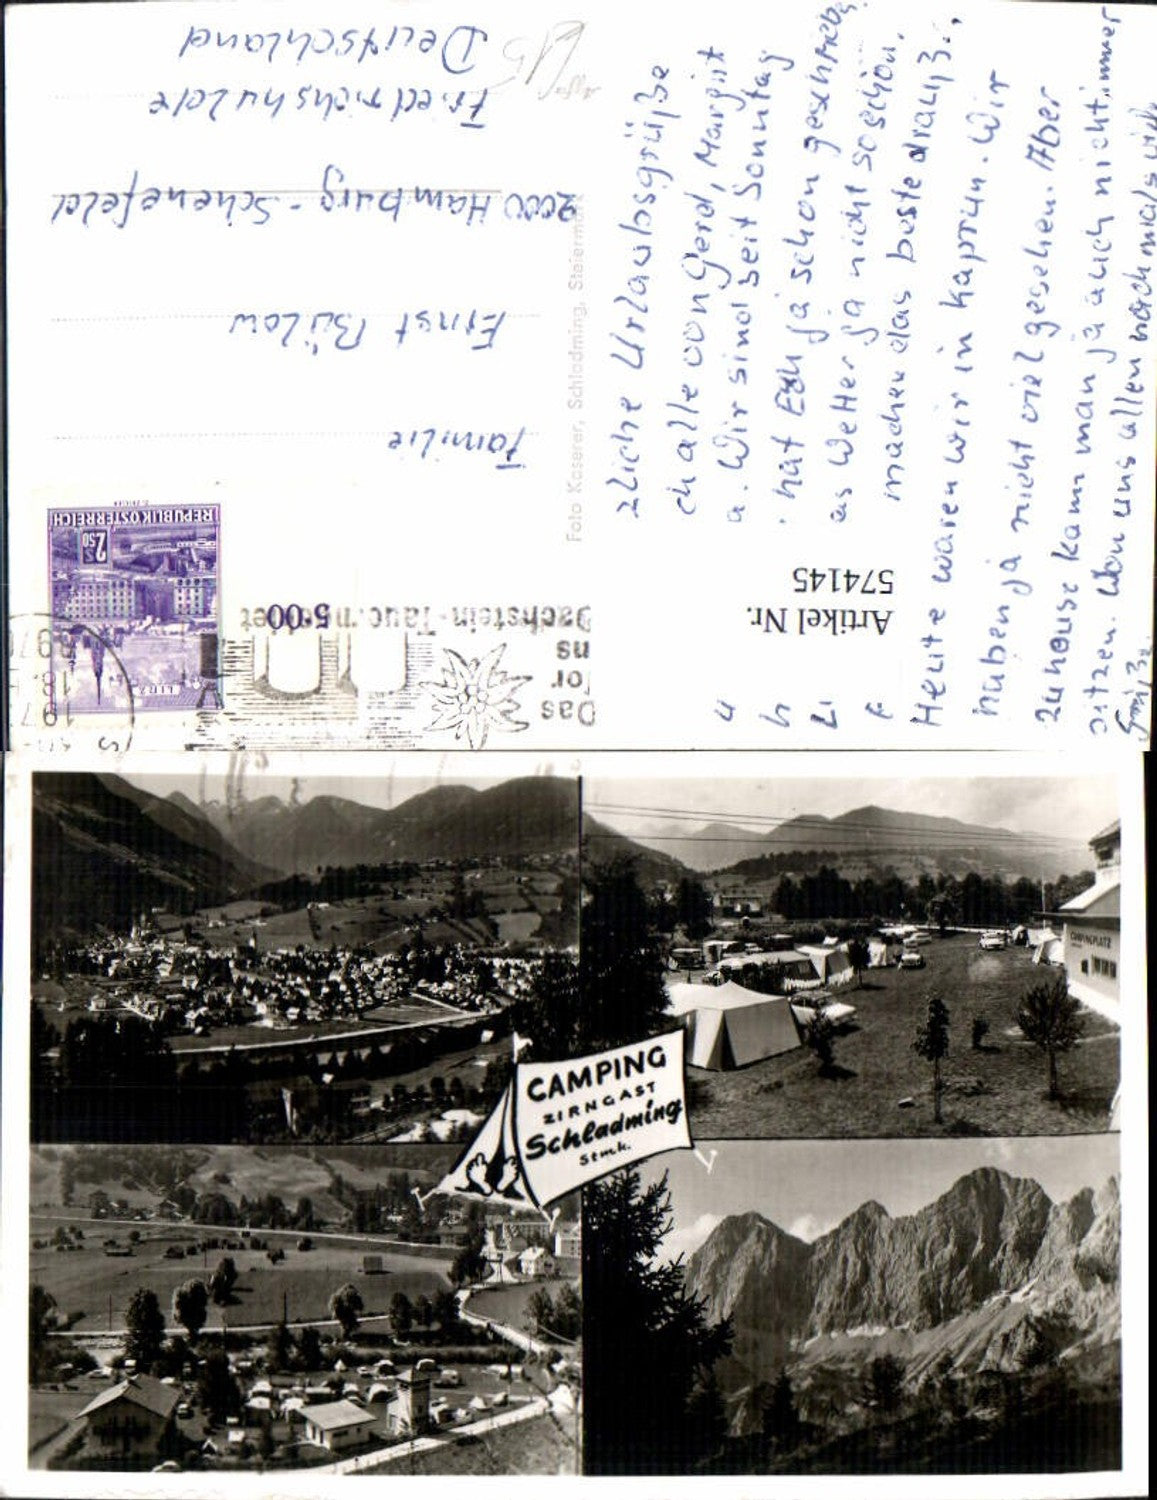 zliche Urlaubsgrüße
ch alle von Gerd, Margrit
a. Wir sind seit Sonntag
hat Euch ja schon geschrieb.
as Wetter ja nicht so schön.
machen das beste drauß.
Heute waren wir in Kaprun. Wir
haben ja nicht viel gesehen. Aber
zuhouse kann man ja auch nicht immer
sitzen. Von uns allen nochmals viele
Grüße
Artikel Nr.
574145
Foto Kaserer, Schladming, Steiermark
Das
Dachstein-Tauerngebiet
5:00
REPUBLIK ÖSTERREICH
2.50
S
LINZ
Familie
Ernst Bülow
2000 Hamburg - Schenefeld
Friedrichshulde
Deutschland
CAMPING
ZIRNGAST
Schladming
Stmk.
CAMPINGPLATZ